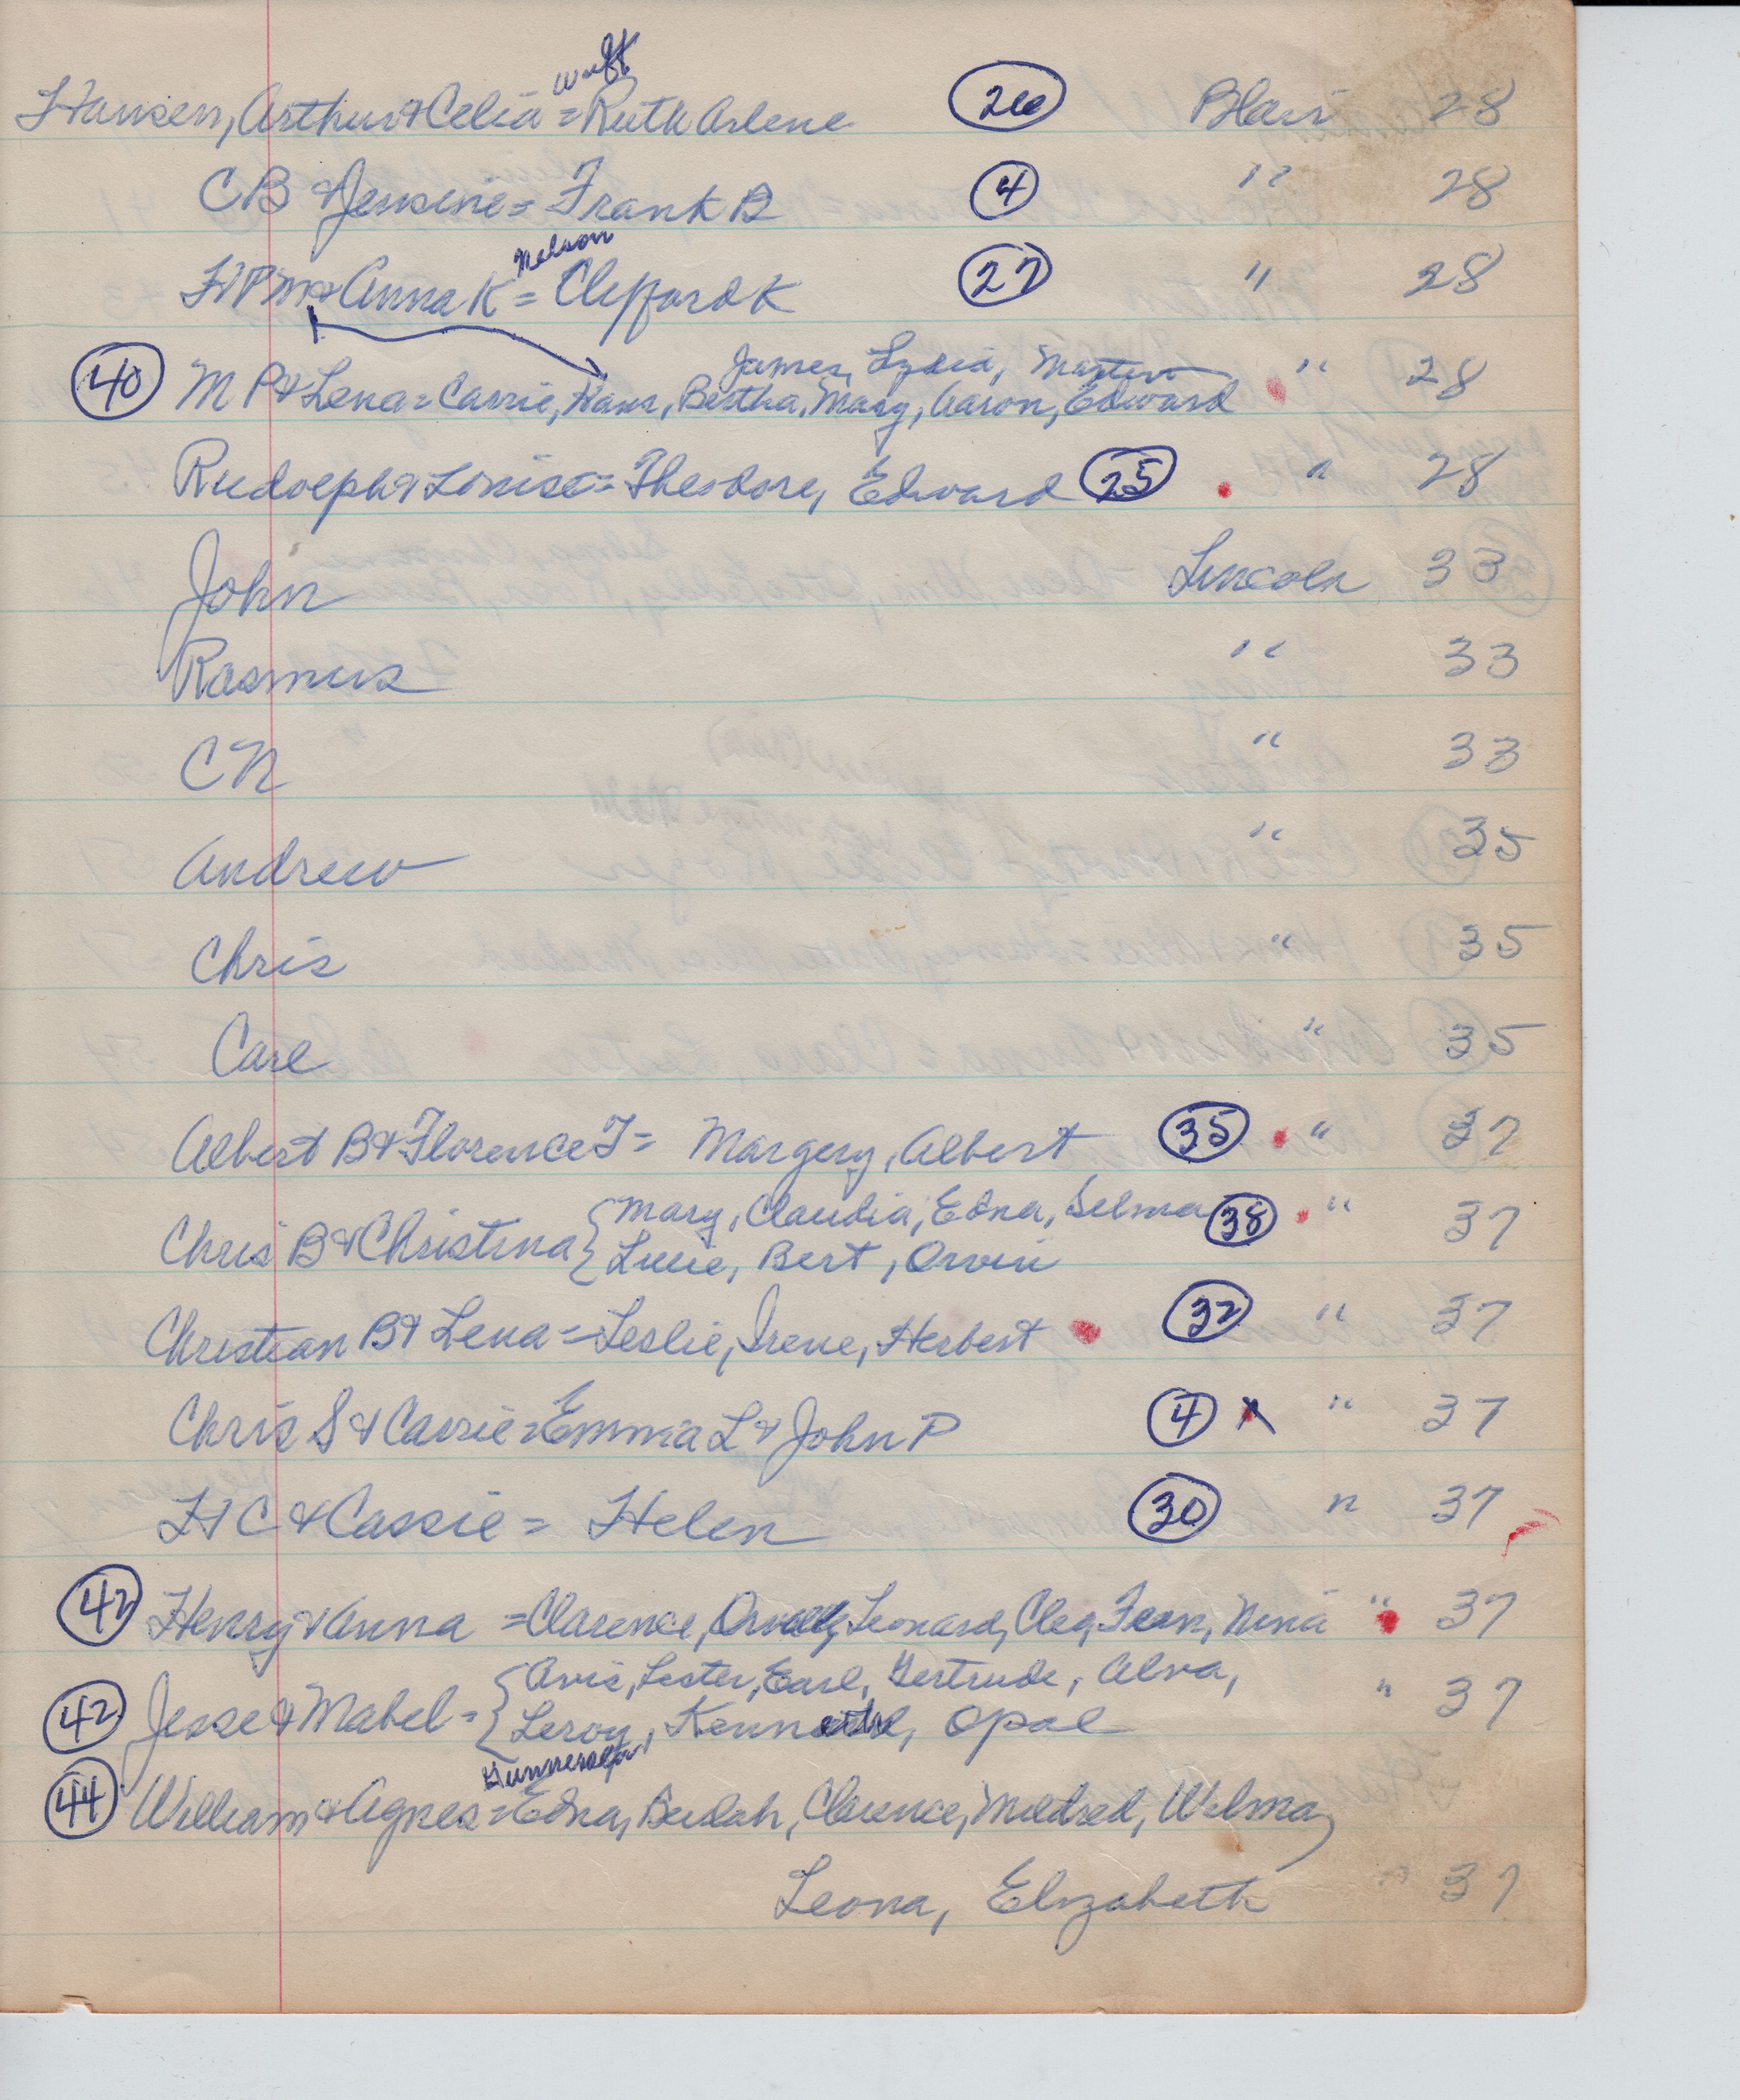 Wulff
Hansen, Arthur & Celia = Ruth Arlene 26 Blair 28
CB & Jensine = Frank B 4 " 28
Nelson
HPM & Anna K = Clifford K 27 " 28
James, Lydia, Martin
40 M P & Lena = Carrie, Hans, Bertha, Mary, Aaron, Edward " 28
Rudolph & Louise = Theodore, Edward 25 " 28
John Lincoln 33
Rasmus " 33
CN " 33
Andrew " 35
Chris " 35
Carl " 35
Albert B & Florence F = Margery, Albert 35 " 37
Mary, Claudia, Edna, Selma 38 " 37
Chris B & Christina { Lucie, Bert, Orvin
Christian B & Lena = Leslie, Irene, Herbert 32 " 37
Chris S & Carrie = Emma L & John P 4 x " 37
H C & Cassie = Helen 30 " 37
42 Henry & Anna = Clarence, Leonard, Cleo, Fern, Nina " 37
{ Avis, Lester, Earl, Gertrude, Alva, " 37
42 Jesse & Mabel = Leroy, Kenneth, Opal
44 William & Agnes = Edna, Beulah, Clarence, Mildred, Wilma,
Leona, Elizabeth " 37